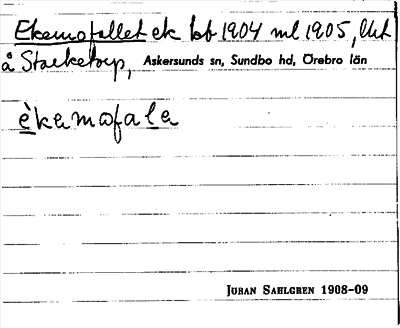 Ekemofallet ek kb 1904 ml 1905, Utk
å Stocketorp, Askersunds sn, Sundbo hd, Örebro län
èkamofala
JÖRAN SAHLGREN 1908-09